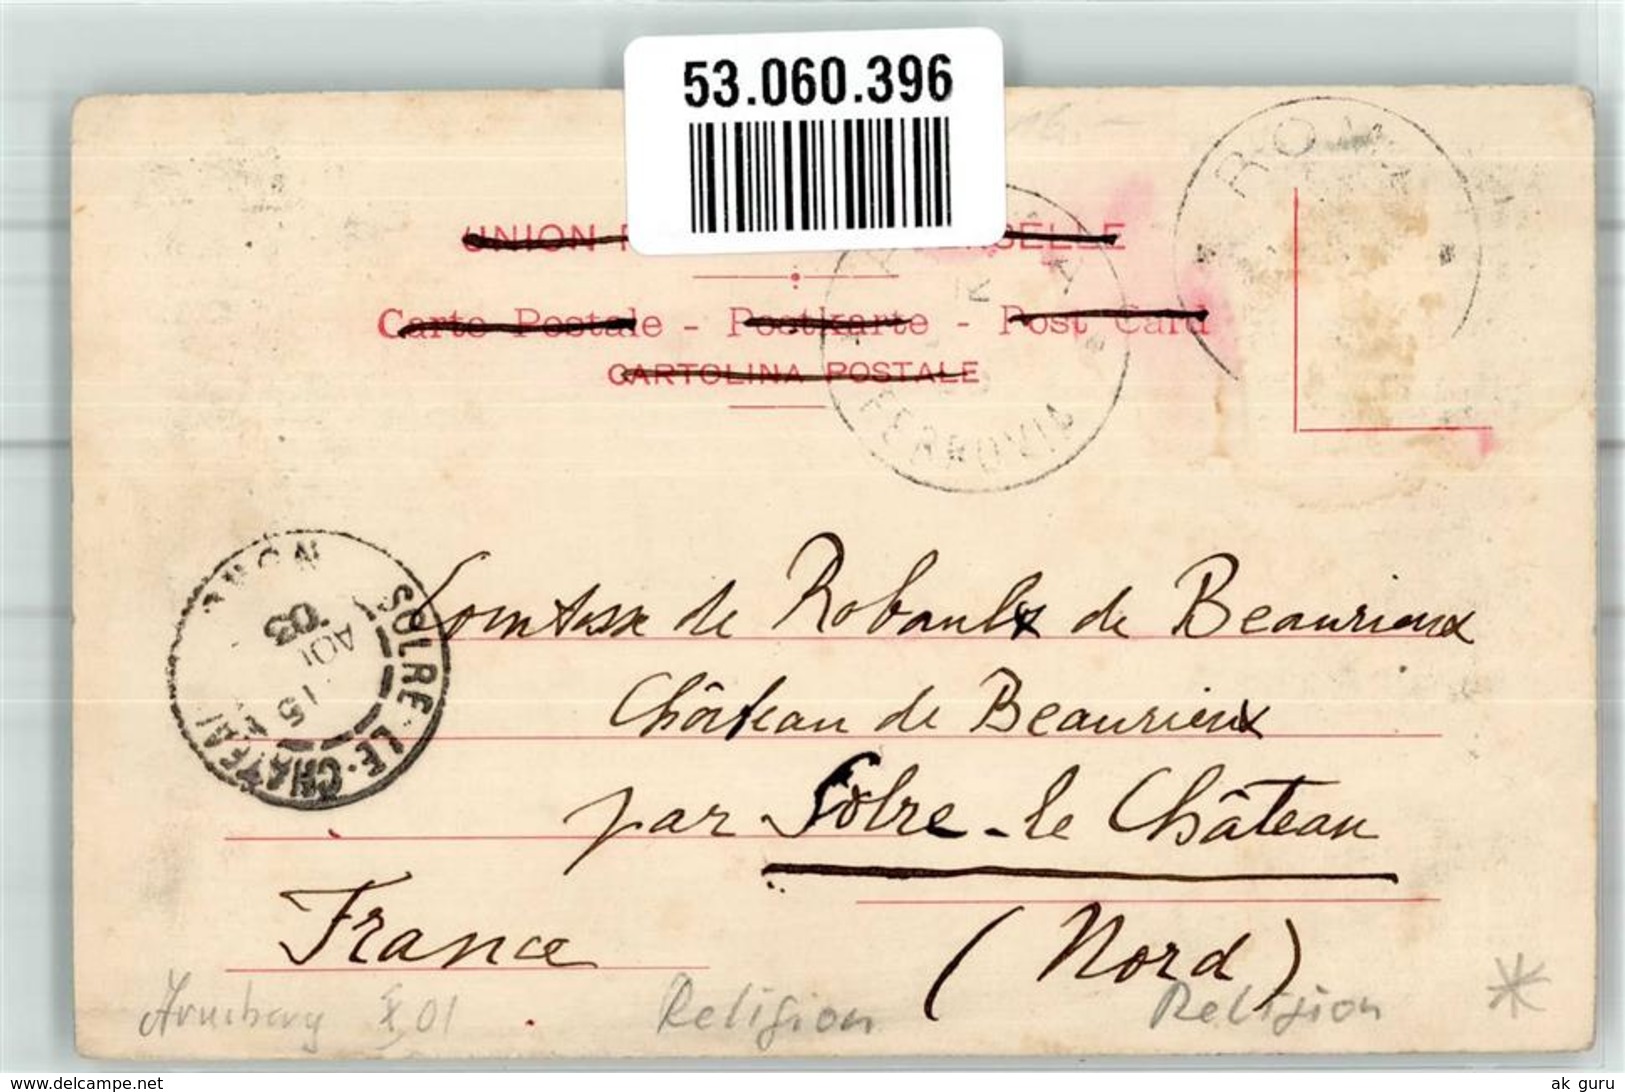 53.060.396
ROMA
UNION
Carte Postale - Postkarte - Post Card
CARTOLINA POSTALE
FERROVIA
Comtesse de Robaulx de Beaurieux
Château de Beaurieux
par Solre-le Château
(Nord)
France
SOLRE-LE-CHATEAU
NORD
15
AOUT
03
Religion
Religion
01
ak guru